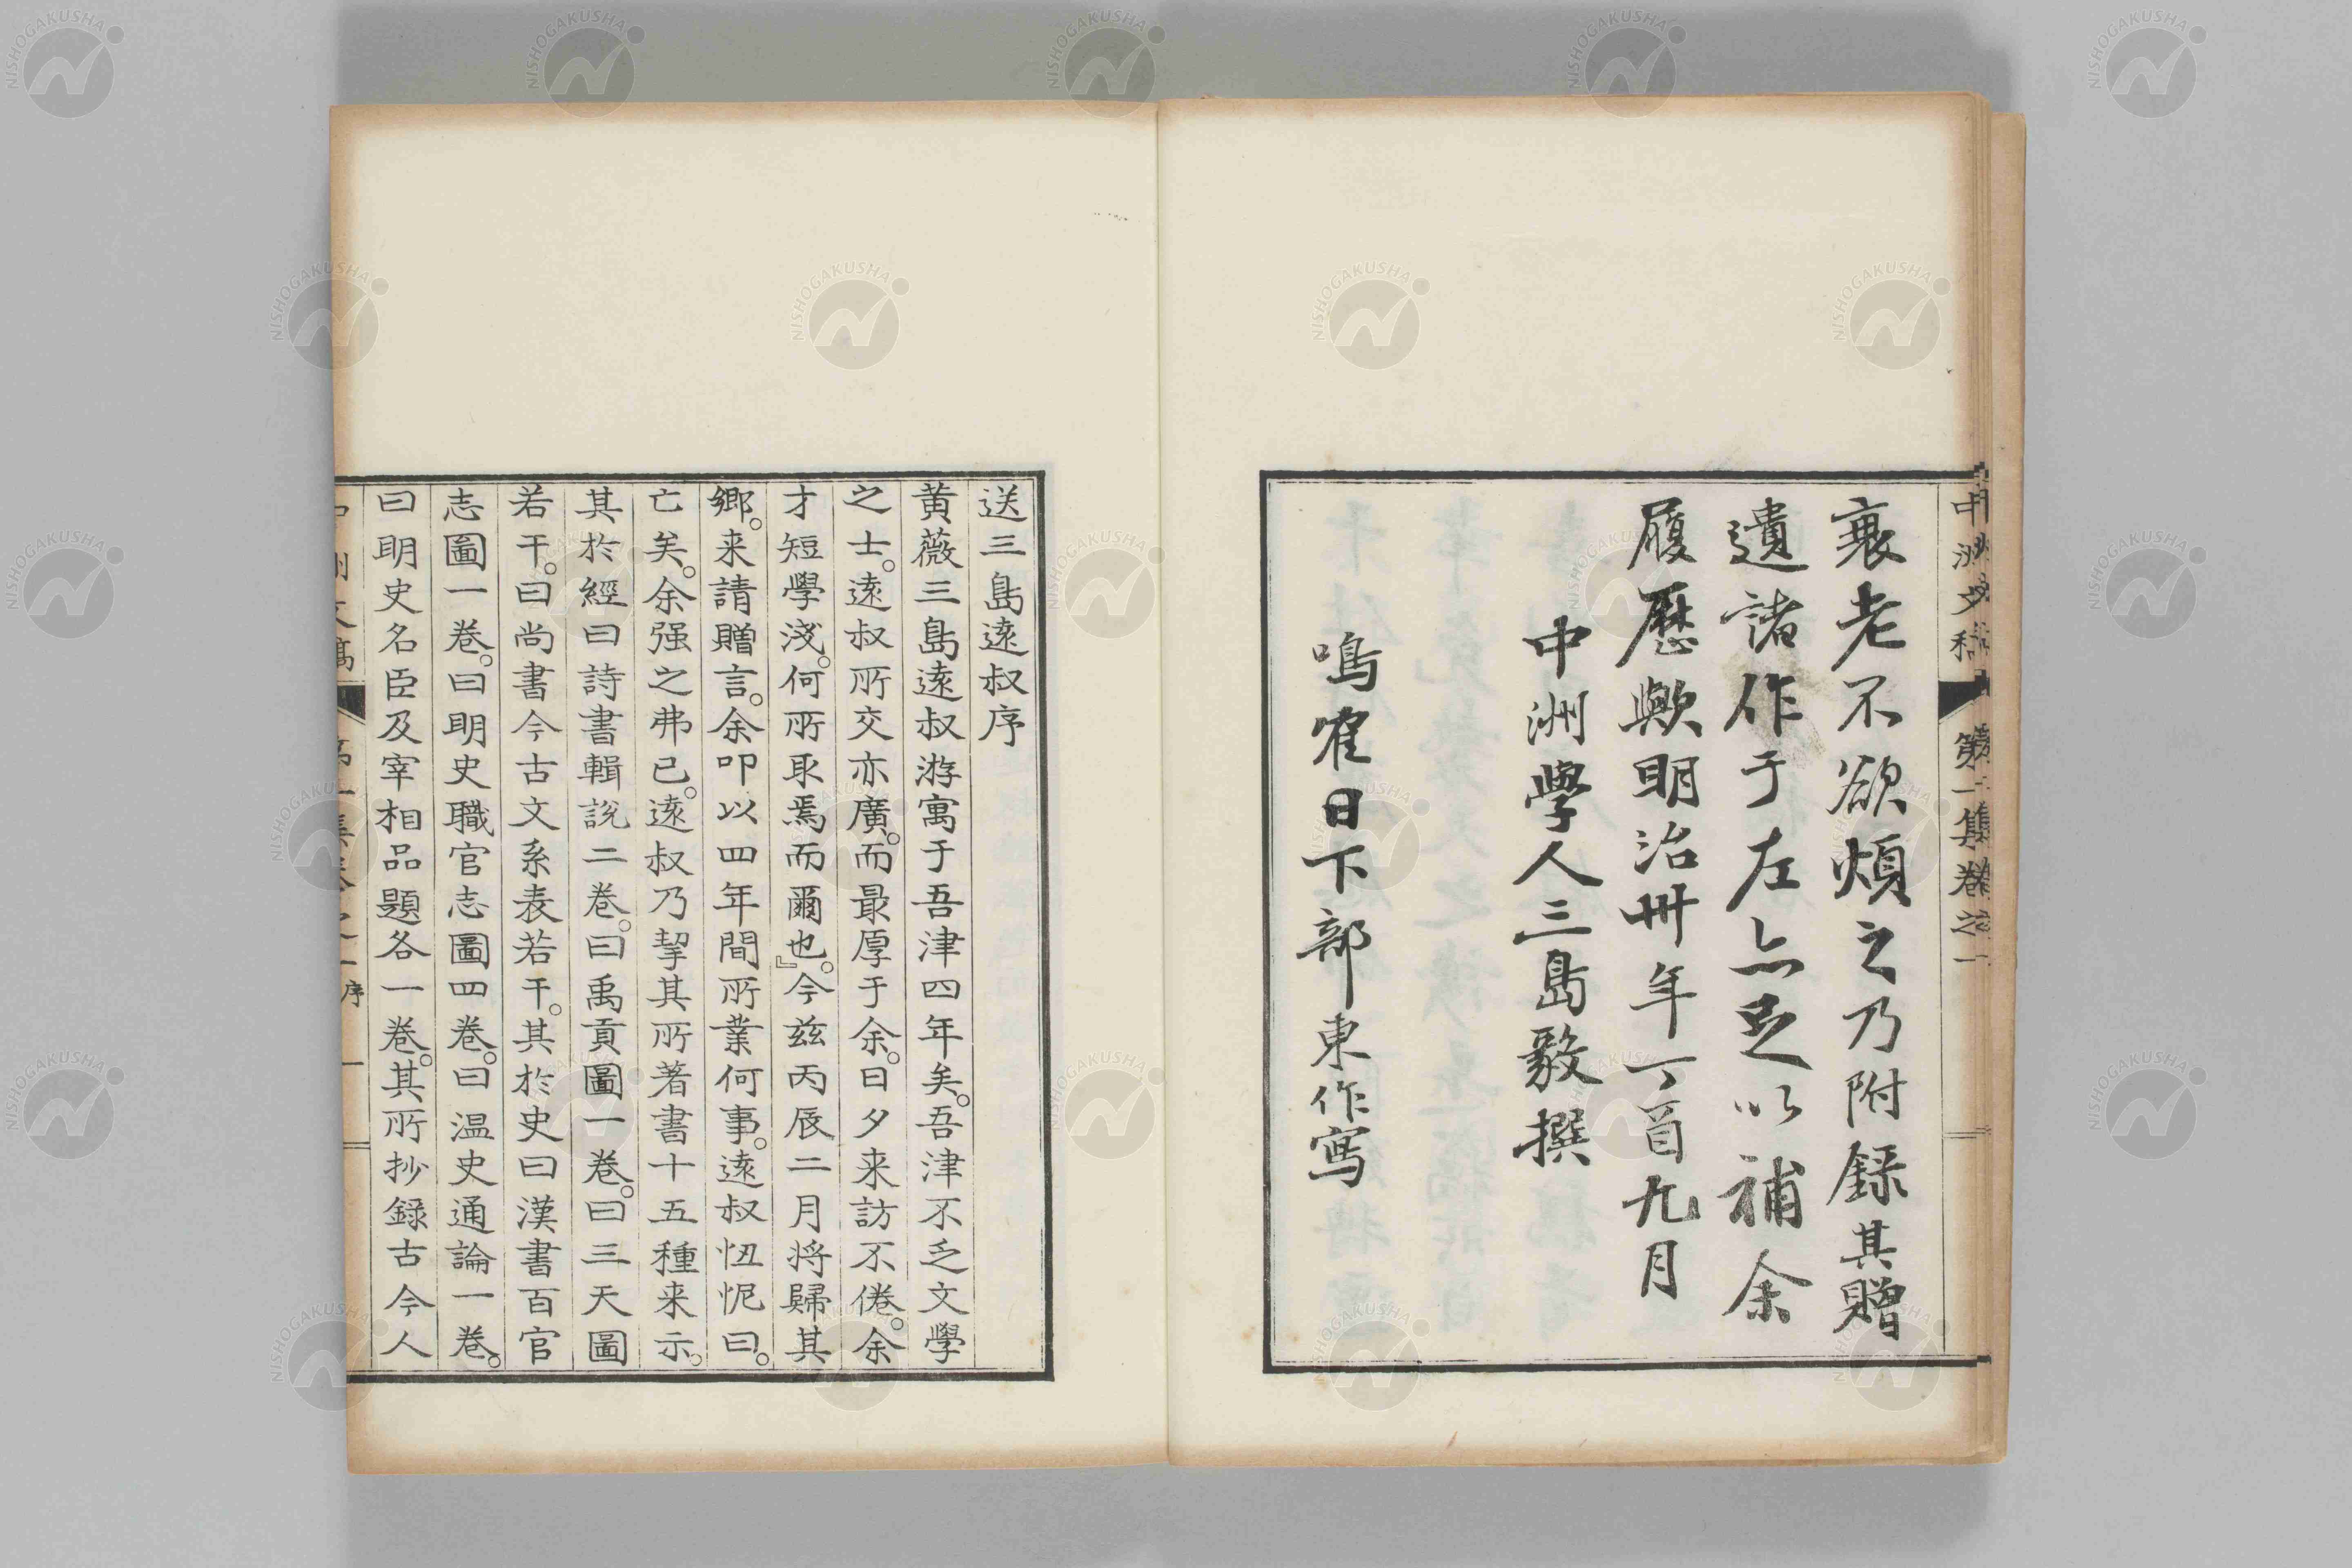 衰老不欲煩之乃附録其贈
遺諸作于左亦足以補余
履歷歟明治卅年丁酉九月
中洲學人三島毅撰
鳴寉日下部東作寫
送三島遠叔序
黄薇三島遠叔游寓于吾津四年矣。吾津不乏文學
之士。遠叔所交亦廣。而最厚于余。日夕来訪不倦。余
才短學淺。何所取焉而爾也。』今兹丙辰二月将歸其
鄉。来請贈言。余叩以四年間所業何事。遠叔忸怩曰。
亡矣。余强之弗已。遠叔乃挈其所著書十五種来示。
其於經曰詩書輯說二巻。曰禹貢圖一巻。曰三天圖
若干。曰尚書今古文系表若干。其於史曰漢書百官
志圖一巻。曰明史職官志圖四巻。曰温史通論一巻。
曰明史名臣及宰相品題各一巻。其所抄録古今人
NISHOGAKUSHA